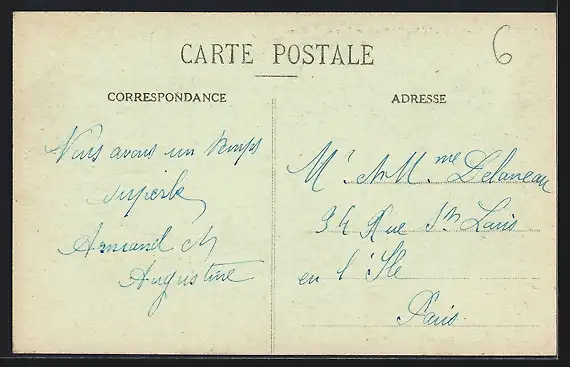 6
CARTE POSTALE
CORRESPONDANCE
ADRESSE
Nous avons un temps
superbe
Armand et
Augustine
Mr et Mme Delaneau
34 Rue St Louis
en l'Ile
Paris